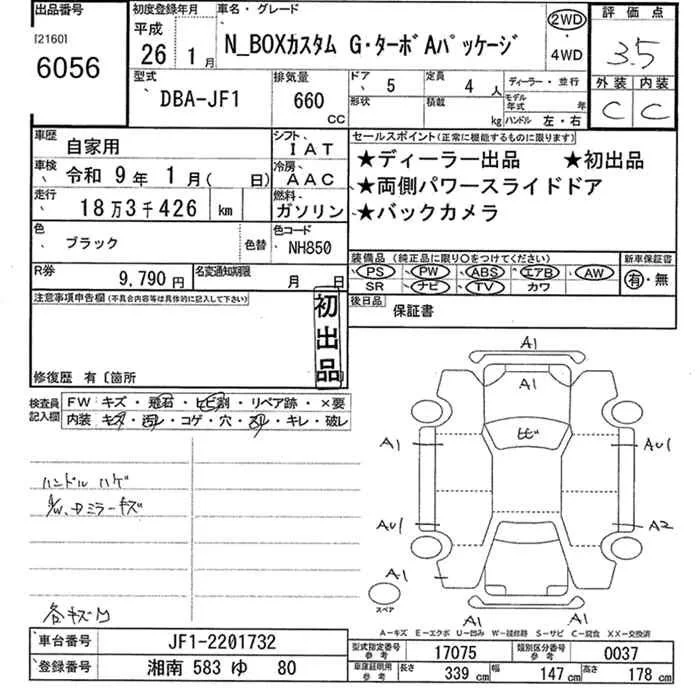 出品番号
[2160]
6056
初度登録年月
平成
26 1月
車名・グレード
N_BOXカスタム G・ターボAパッケージ
2WD
・
4WD
評価点
3.5
外装 内装
C C
型式
DBA-JF1
排気量
660
CC
ドア 5
定員 4 人
形状
積載 kg
ディーラー・並行
モデル年式 年
ハンドル 左・右
車歴
自家用
シフト
IAT
車検
令和 9年 1月( 日)
冷房
AAC
走行
18万3千426 km
燃料
ガソリン
色
ブラック
色替
色コード
NH850
R券
9,790円
名変通知期限
月 日
セールスポイント(正常に機能するものに限ります)
★ディーラー出品 ★初出品
★両側パワースライドドア
★バックカメラ
装備品 (純正品に限り○をつけてください)
PS PW ABS エアB AW
SR ナビ TV カワ
新車保証書
有・無
後日品
保証書
注意事項申告欄(不具合内容等は具体的に記入して下さい)
初出品
修復歴 有〔箇所
検査員
記入欄
FW キズ・飛石・ヒビ割・リペア跡・×要
内装 キズ・汚レ・コゲ・穴・スレ・キレ・破レ
ハンドル ハゲ
A1
A1
ヒビ
A1
AU1
AU1
A2
A1
A1
A1
スペア
A-キズ E-エクボ U-凹み W-補修跡 S-サビ C-腐食 XX-交換済
車台番号
JF1-2201732
登録番号
湘南 583 ゆ 80
型式指定番号
参考
17075
類別区分番号
参考
0037
車庫証明用
参考
長さ 339 cm
幅 147 cm
高さ 178 cm